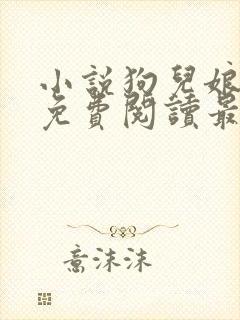 小說狗兒娘
免費閱讀最
意沫沫